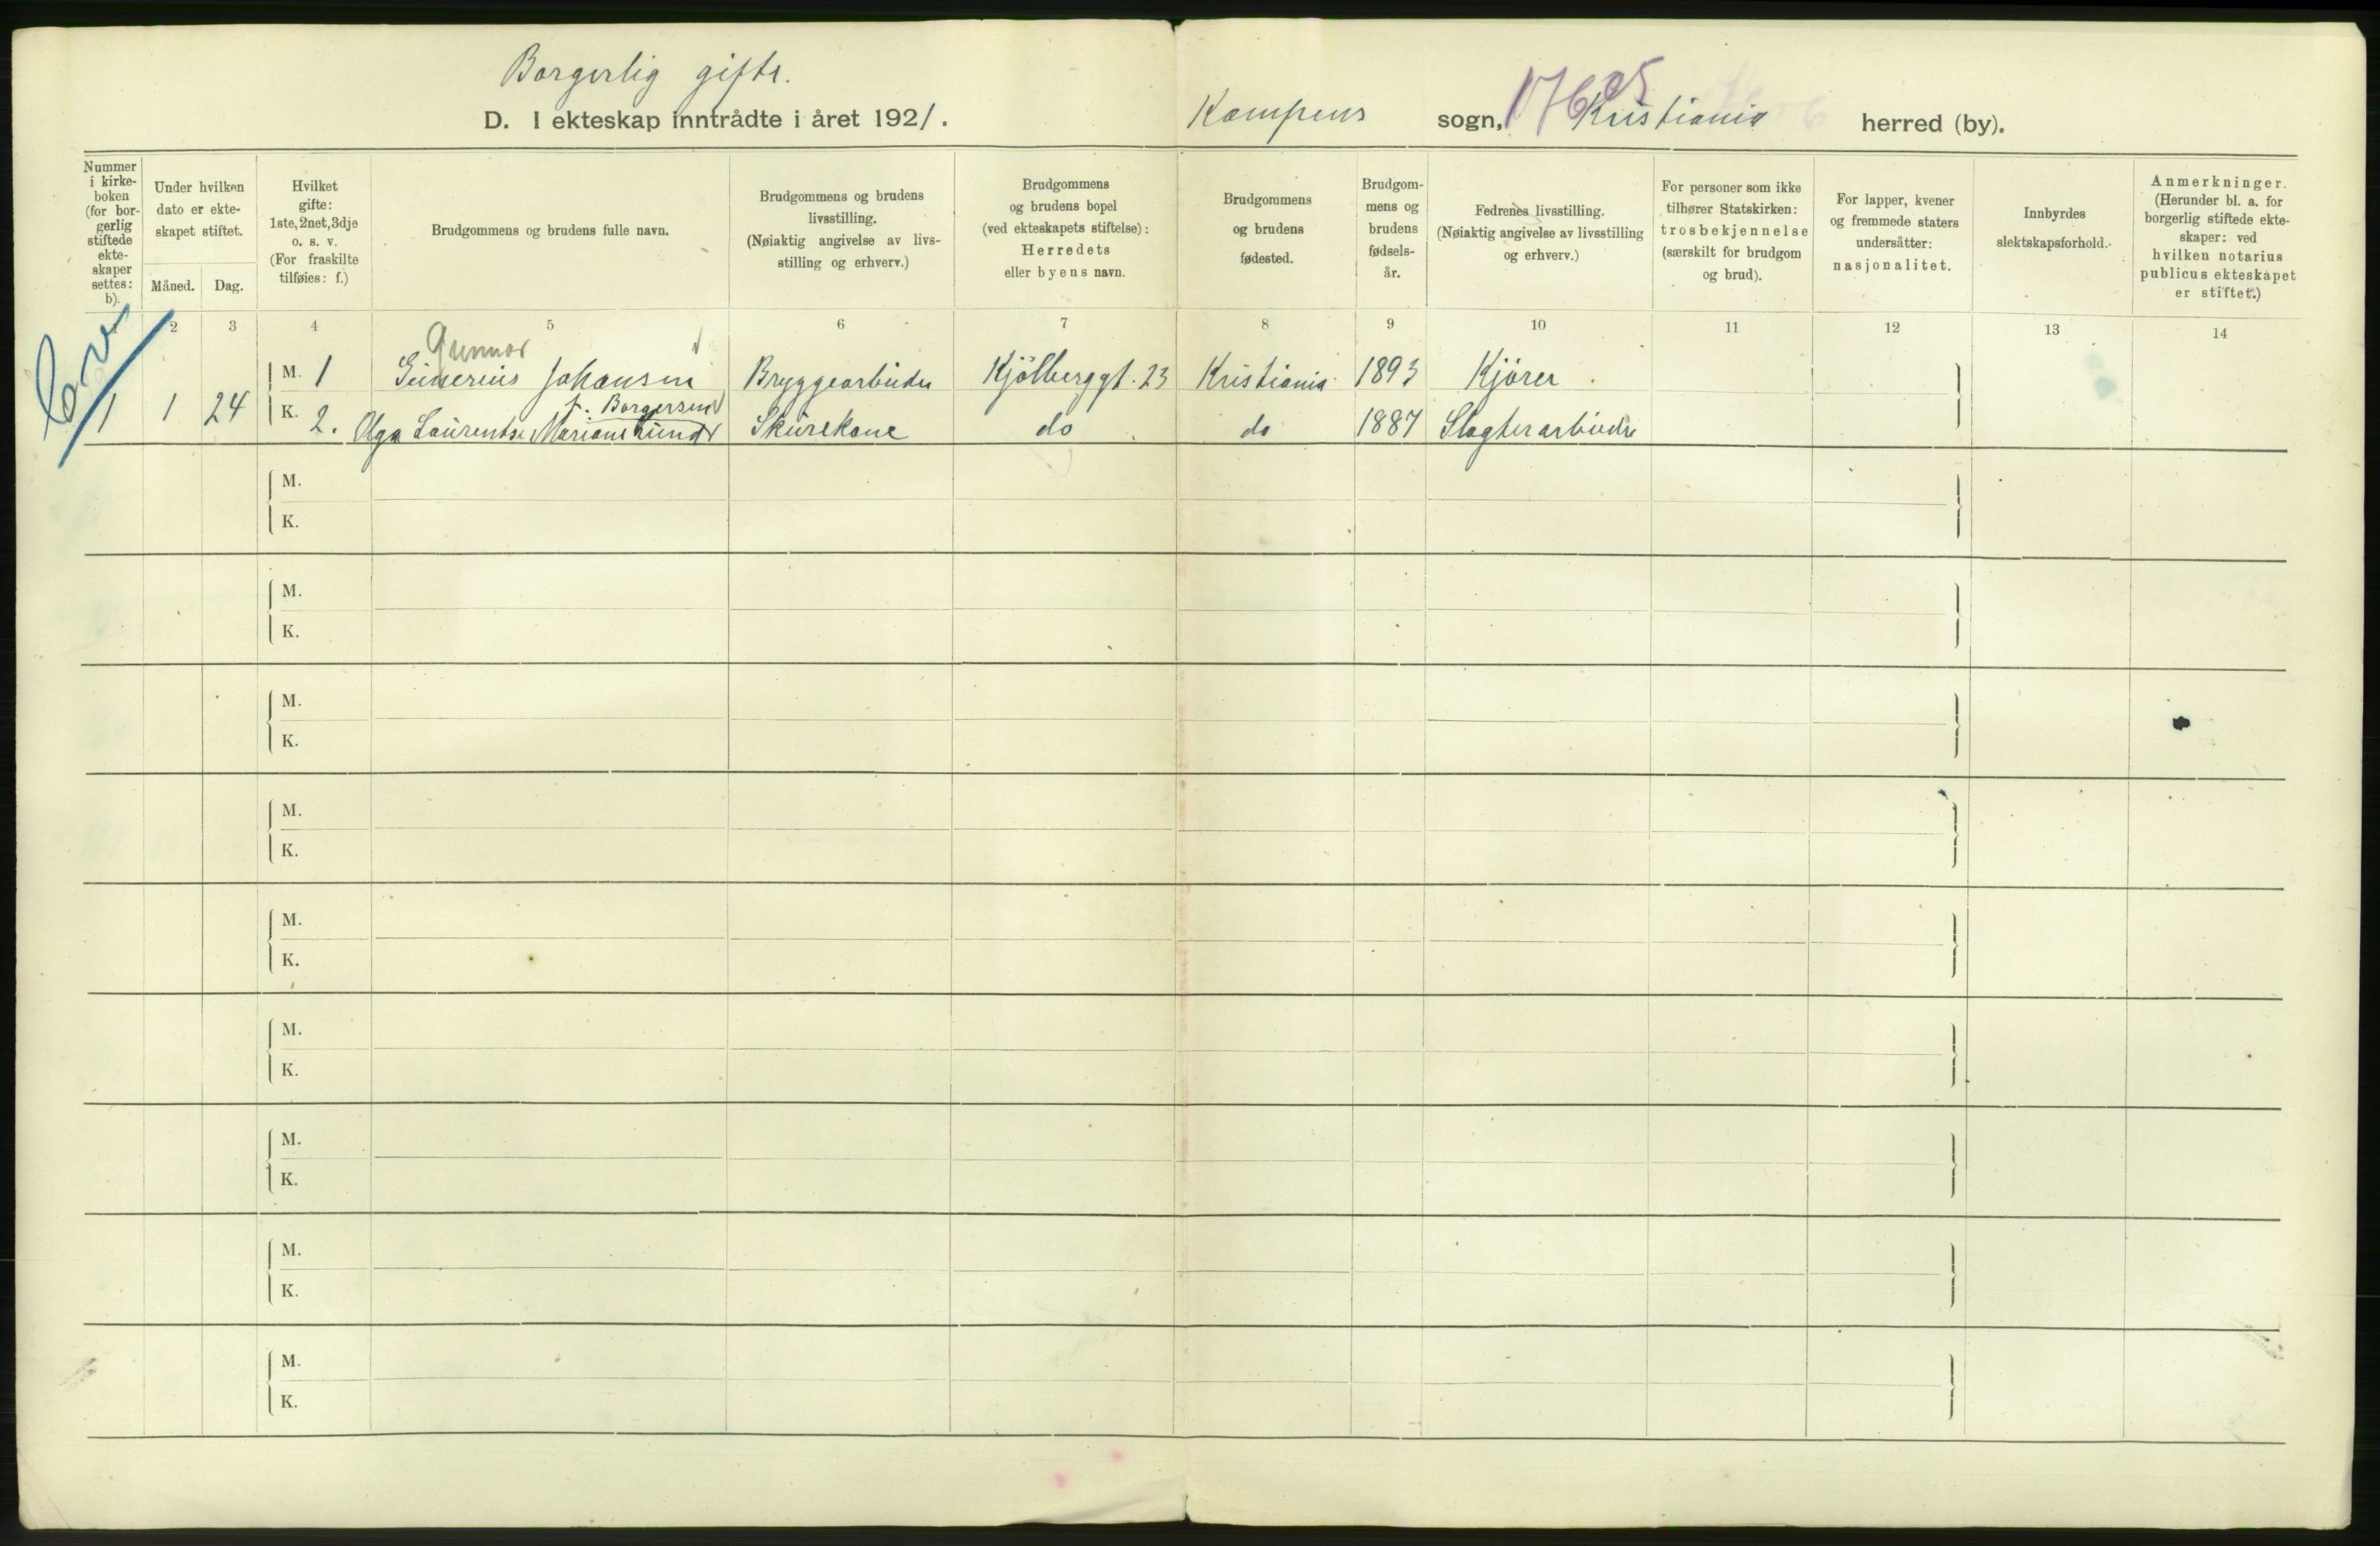 Borgerlig gifte.
D. I ekteskap inntrådte i året 1921. Kampens sogn, Kristiania herred (by).
Nummer i kirke- boken (for bor- gerlig stiftede ekte- skaper settes: b).
Under hvilken dato er ekte- skapet stiftet.
Måned. Dag.
Hvilket gifte: 1ste, 2net, 3dje o. s. v. (For fraskilte tilføies: f.)
Brudgommens og brudens fulle navn.
Brudgommens og brudens livsstilling. (Nøiaktig angivelse av livs- stilling og erhverv.)
Brudgommens og brudens bopel (ved ekteskapets stiftelse): Herredets eller byens navn.
Brudgommens og brudens fødested.
Brudgom- mens og brudens fødsels- år.
Fedrenes livsstilling. (Nøiaktig angivelse av livsstilling og erhverv.)
For personer som ikke tilhører Statskirken: trosbekjennelse (særskilt for brudgom og brud).
For lapper, kvener og fremmede staters undersåtter: nasjonalitet.
Innbyrdes slektskapsforhold.
Anmerkninger. (Herunder bl. a. for borgerlig stiftede ekte- skaper: ved hvilken notarius publicus ekteskapet er stiftet.)
1 2 3 4 5 6 7 8 9 10 11 12 13 14
Gunnar
M. 1 Gunerius Johansen Bryggearbeider Kjølberggt. 23 Kristiania 1893 Kjører
f. Borgersen
1 1 24 K. 2. Olga Laurentse Mariane Lunde Skurekone do do 1887 Slagterarbeider
M.
K.
M.
K.
M.
K.
M.
K.
M.
K.
M.
K.
M.
K.
M.
K.
M.
K.